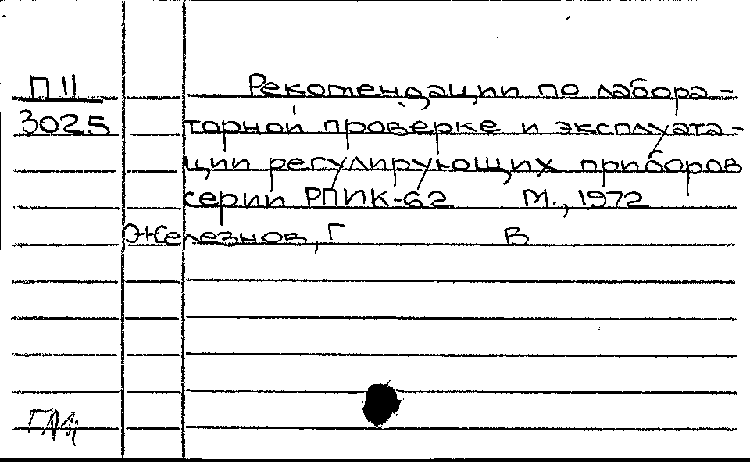 П II
3025
Рекомендации по лабора-
торной проверке и эксплуата-
ции регулирующих приборов
серии РПИК-62 М., 1972
Железнов, Г В